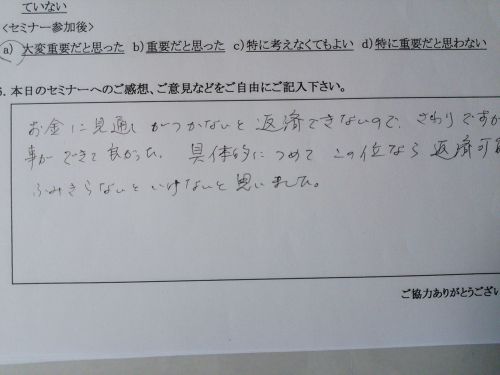 ていない
<セミナー参加後>
a) 大変重要だと思った b) 重要だと思った c) 特に考えなくてもよい d) 特に重要だと思わない
6. 本日のセミナーへのご感想、ご意見などをご自由にご記入下さい。
お金に見通しがつかないと返済できないので、さわりですが
事ができて良かった。具体的につめてこの位なら返済可能
ふみきらないといけないと思いました。
ご協力ありがとうござい